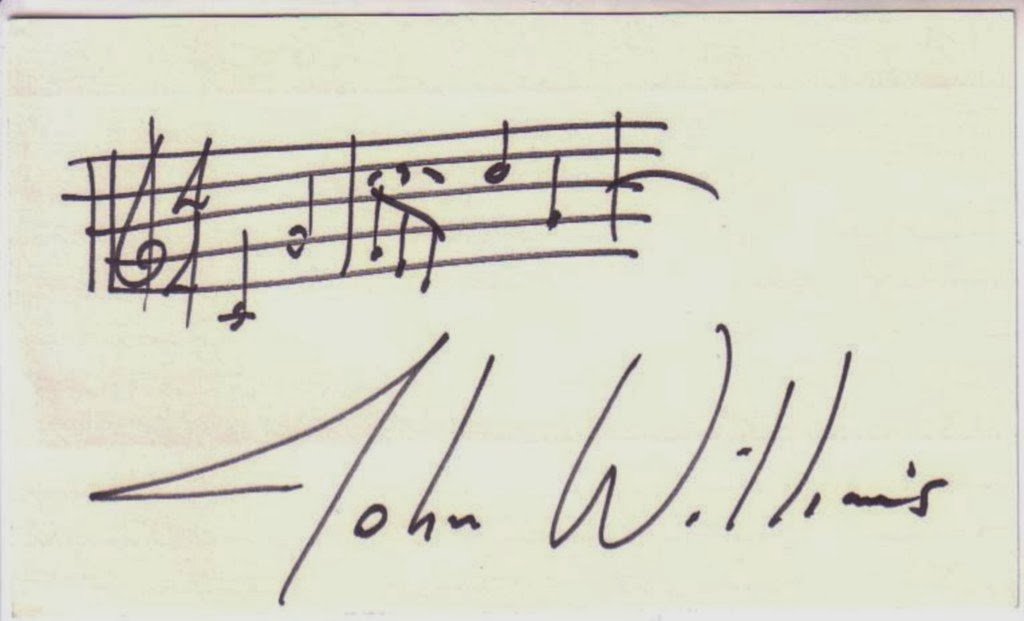 John Williams